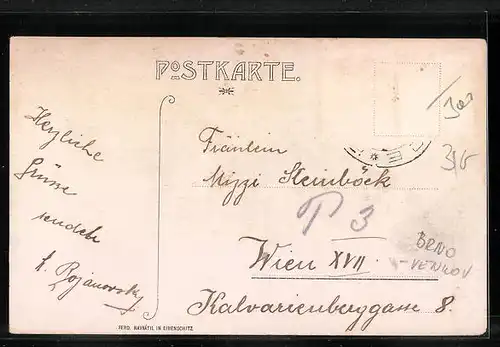 POSTKARTE.
Herzliche
Grüsse
sendet
Fräulein
Mizzi Steinböck
Wien XVII
Kalvarienberggasse 8.
P 3
BRNO
- VENKOV
FERD. NAVRÁTIL IN EIBENSCHITZ.